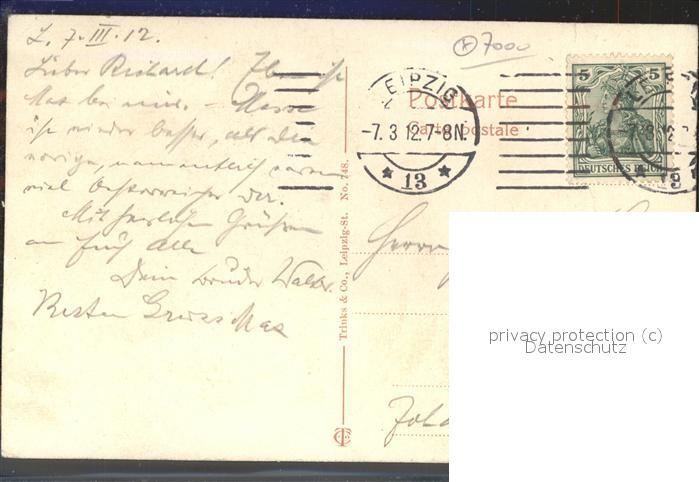 L. 7. III. 12.
Lieber Richard! ist
Max bei mir. – Messe
ist wieder besser, als die
vorige, namentlich waren
viel Oesterreicher da.
Mit herzlichen Grüßen
an Euch alle
Dein Bruder Walter.
Besten Gruss Max
7000
LEIPZIG
-7.3.12.7-8N.
* 13 *
Postkarte
Carte postale
5 5
DEUTSCHES REICH
Trinks & Co., Leipzig-St. No. 748.
Herrn
privacy protection (c)
Datenschutz